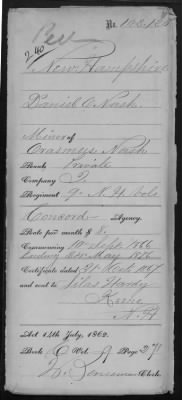 Rev
No. 108.185
New Hampshire
Daniel O. Nash
Minor of
Erasmus Nash
Rank Private
Company I
Regiment 9" N.H. Vols
Concord Agency.
Rate per month $ 8.
Commencing 10" Sept 1866
Ending 8th May 1876
Certificate dated 31" Oct 1867
and sent to Silas Hardy
Keene
N.H
Act 14th July, 1862.
Book C Vol. 9 Page 271
Clerk.